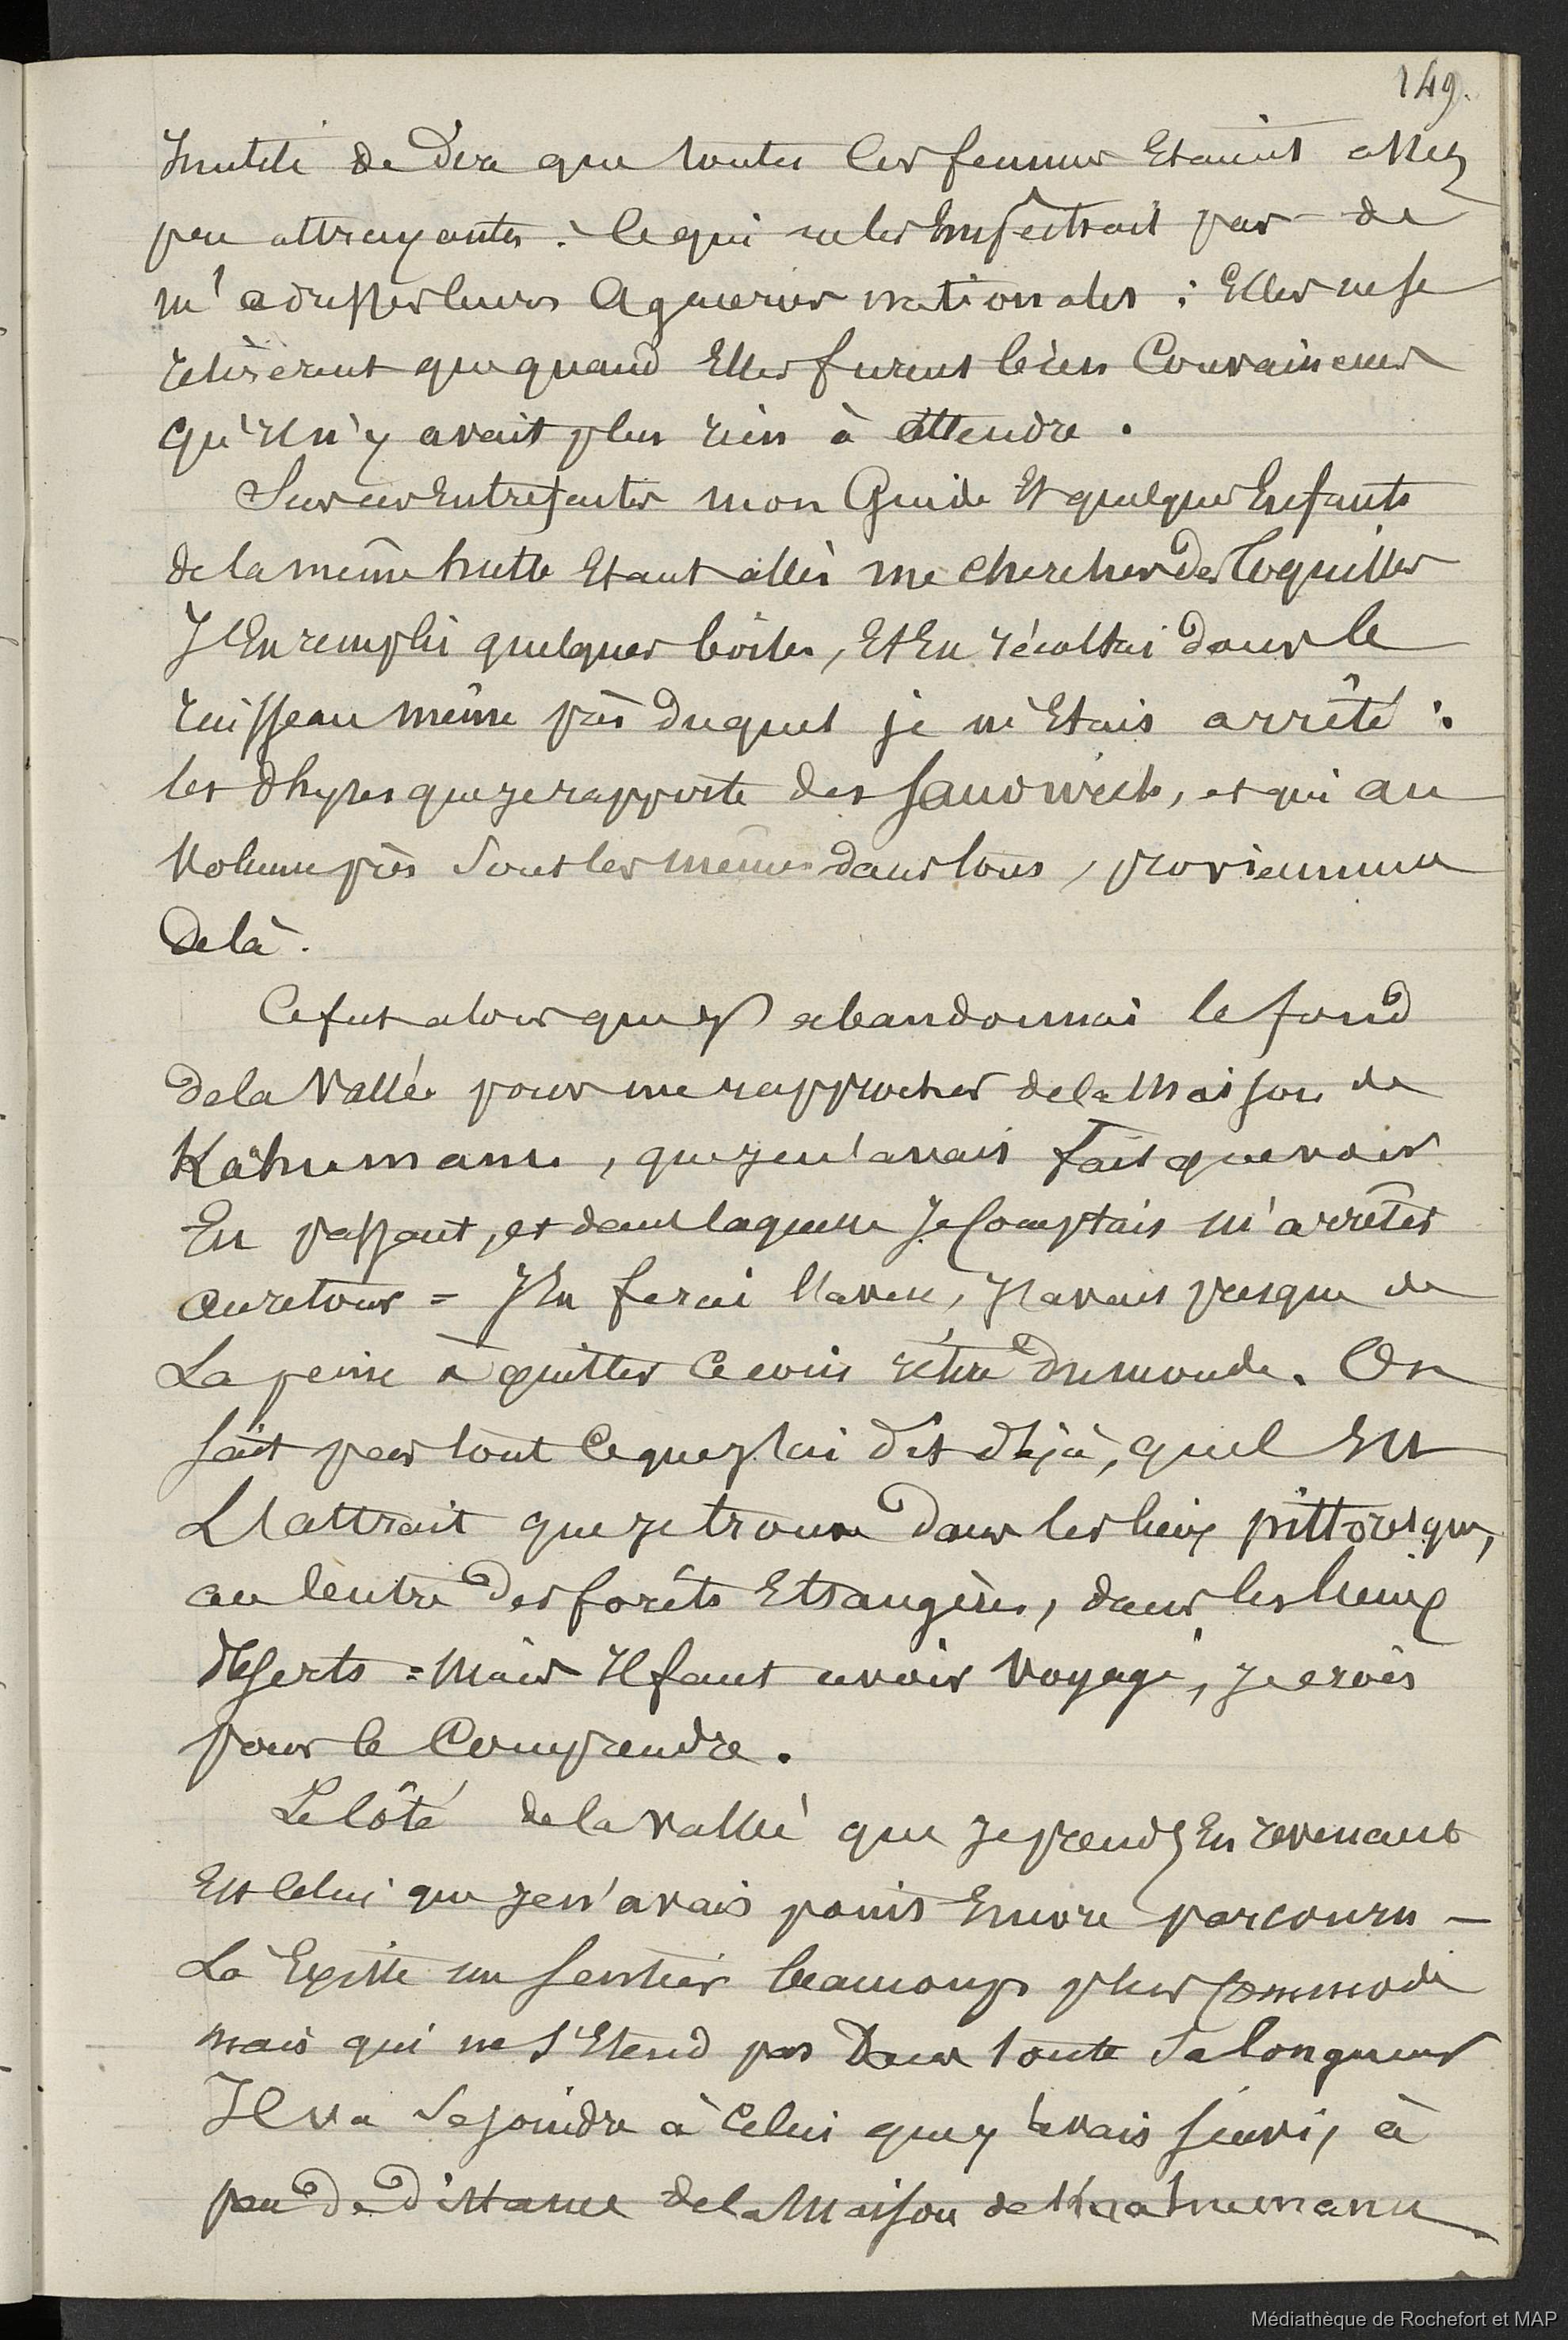 149.
Inutile de dire que toutes les femmes Etaient assez
peu attrayantes : ce qui ne les Empêchait pas de
m'adresser leurs Agaceries nationales : Elles ne se
retirèrent que quand Elles furent bien Convaincues
qu'Il n'y avait plus rien à attendre .
Sur ces Entrefaites mon Guide Et quelques Enfants
de la même hutte Etant allés me chercher des Coquilles
J'En rempli quelques boites, Et En récoltai dans le
ruisseau même près duquel je m'Etais arrêté :
les physes que je rapporte des Sandwich, et qui au
Volume près Sont les mêmes dans tous, proviennent
de là .
Ce fut alors que j'abandonnai le fond
de la Vallée pour me rapprocher de la Maison de
Kahumanu, que je n'avais fait que voir
En passant, et dans laquelle Je Comptais m'arrêter
au retour = J'En ferai l'aveu, J'avais presque de
La peine à quitter Ce coin rétiré du monde. On
sait par tout Ce que j'ai dit déjà, quel Est
L'attrait que je trouve dans les lieux pittoresques,
au Centre des forêts Etrangères, dans les lieux
déserts = Mais Il faut avoir Voyagé, je crois
pour le Comprendre .
Le Côté de la Vallée que Je prends En revenant
Est Celui que je n'avais point Encore parcouru –
Là Existe un Sentier beaucoup plus Commode
mais qui ne S'Etend pas Dans toute Sa longueur
Il va Se joindre à Celui que j'avais suivi, à
peu de distance de la Maison de Kaahumanu
Médiathèque de Rochefort et MAP